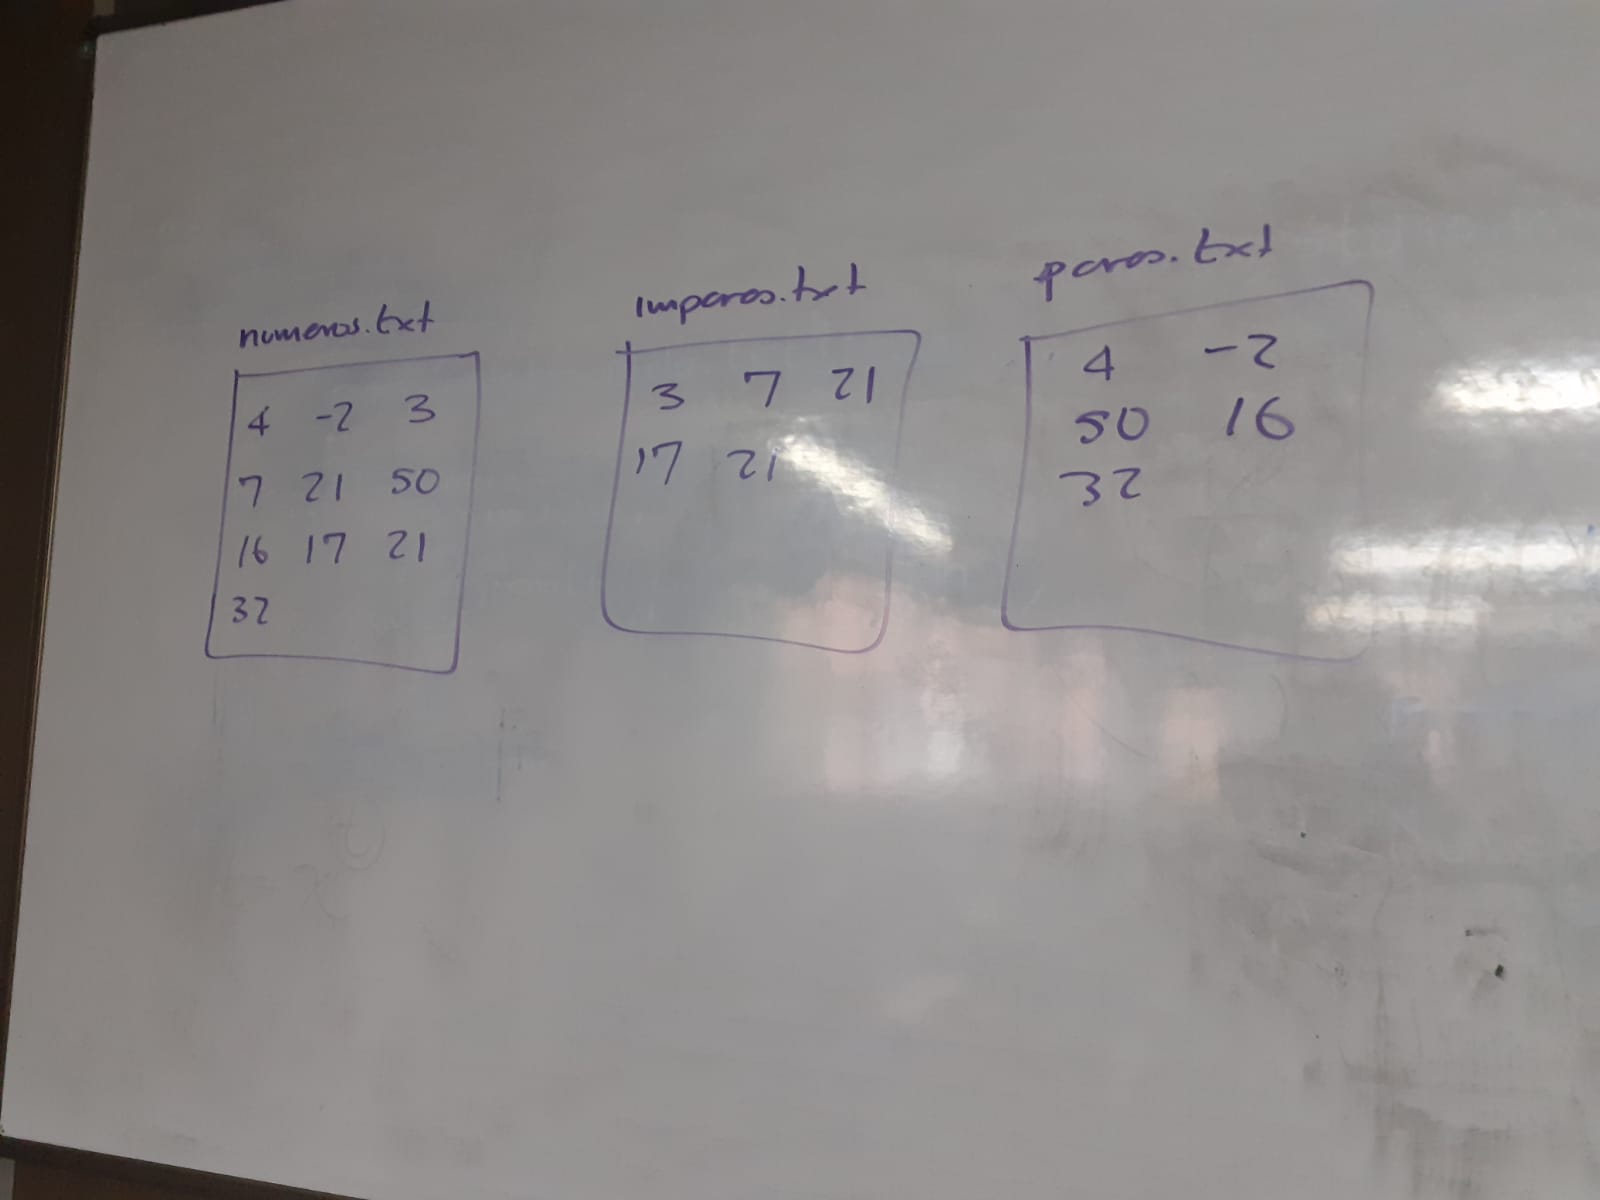 numeros.txt
4 -2 3
7 21 50
16 17 21
32
impares.txt
3 7 21
17 21
pares.txt
4 -2
50 16
32